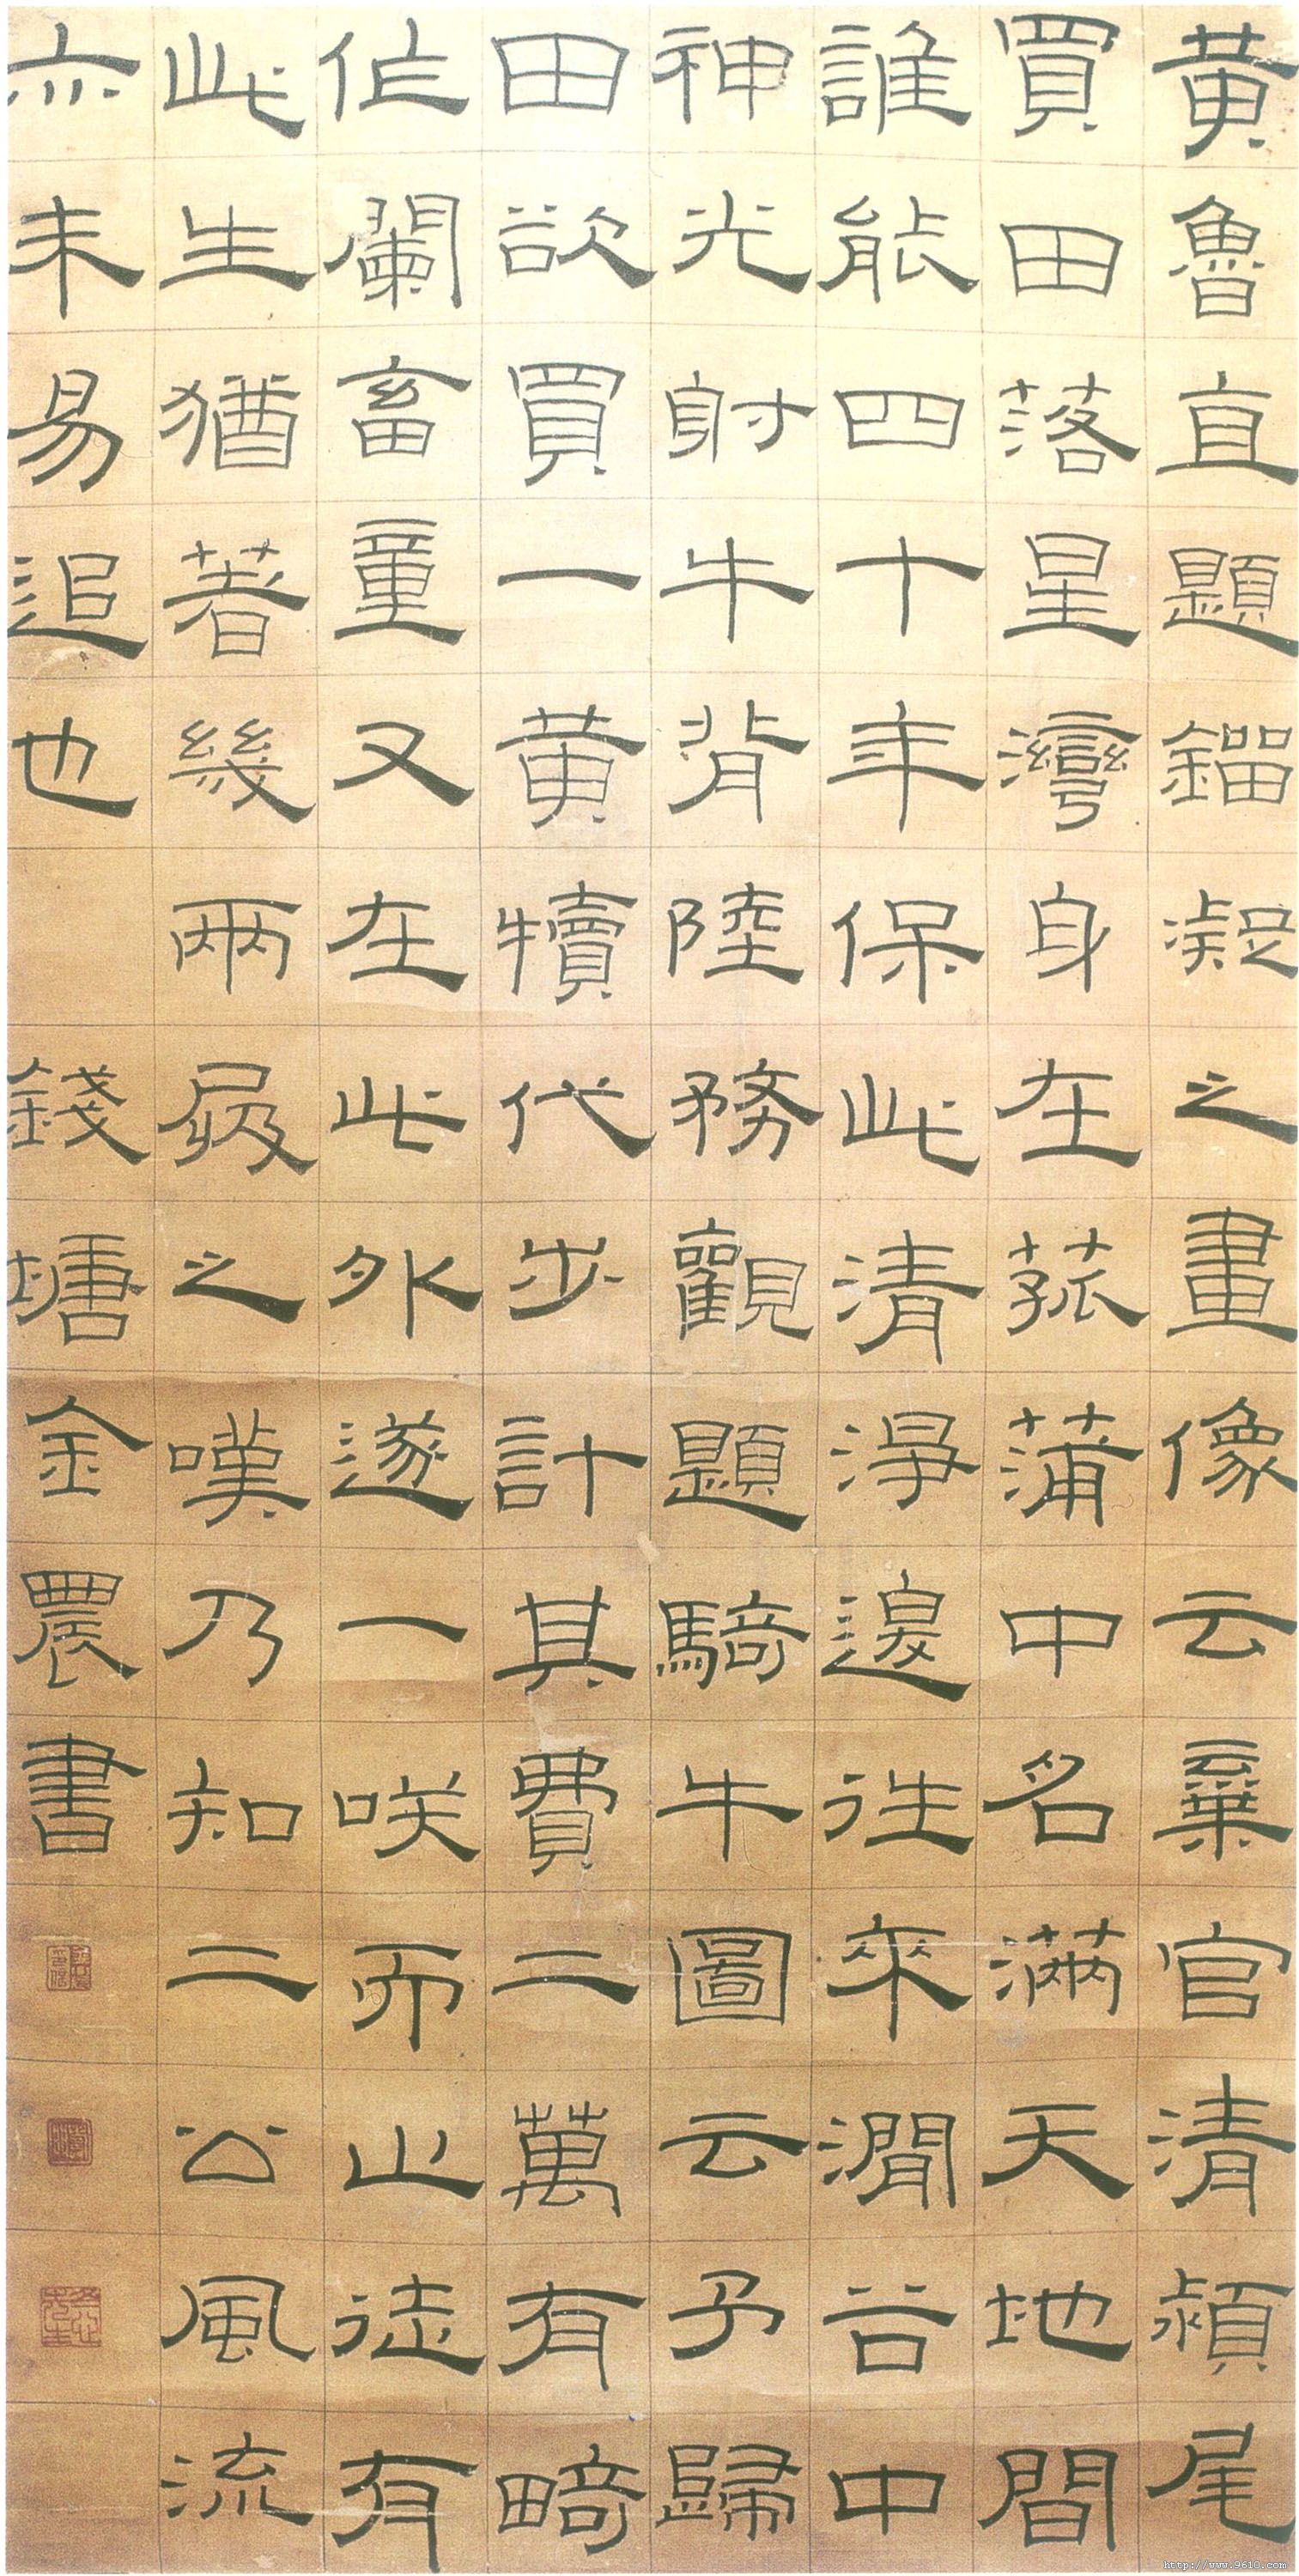 黄魯直題鎦凝之畫像云棄官清潁尾
買田落星灣身在菰蒲中名滿天地間
誰能四十年保此清淨邊往來澗谷中
神光射牛背陸務觀題騎牛圖云予歸
田欲買一黄犢代步計其費二萬有畸
作闌畜童又在此外遂一咲而止徒有
此生猶著幾兩屐之嘆乃知二公風流
亦未易追也 錢塘金農書
http://www.9610.com